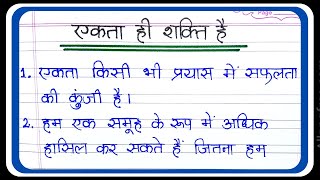 एकता ही शक्ति है
1. एकता किसी भी प्रयास में सफलता
की कुंजी है।
2. हम एक समूह के रूप में अधिक
हासिल कर सकते हैं जितना हम